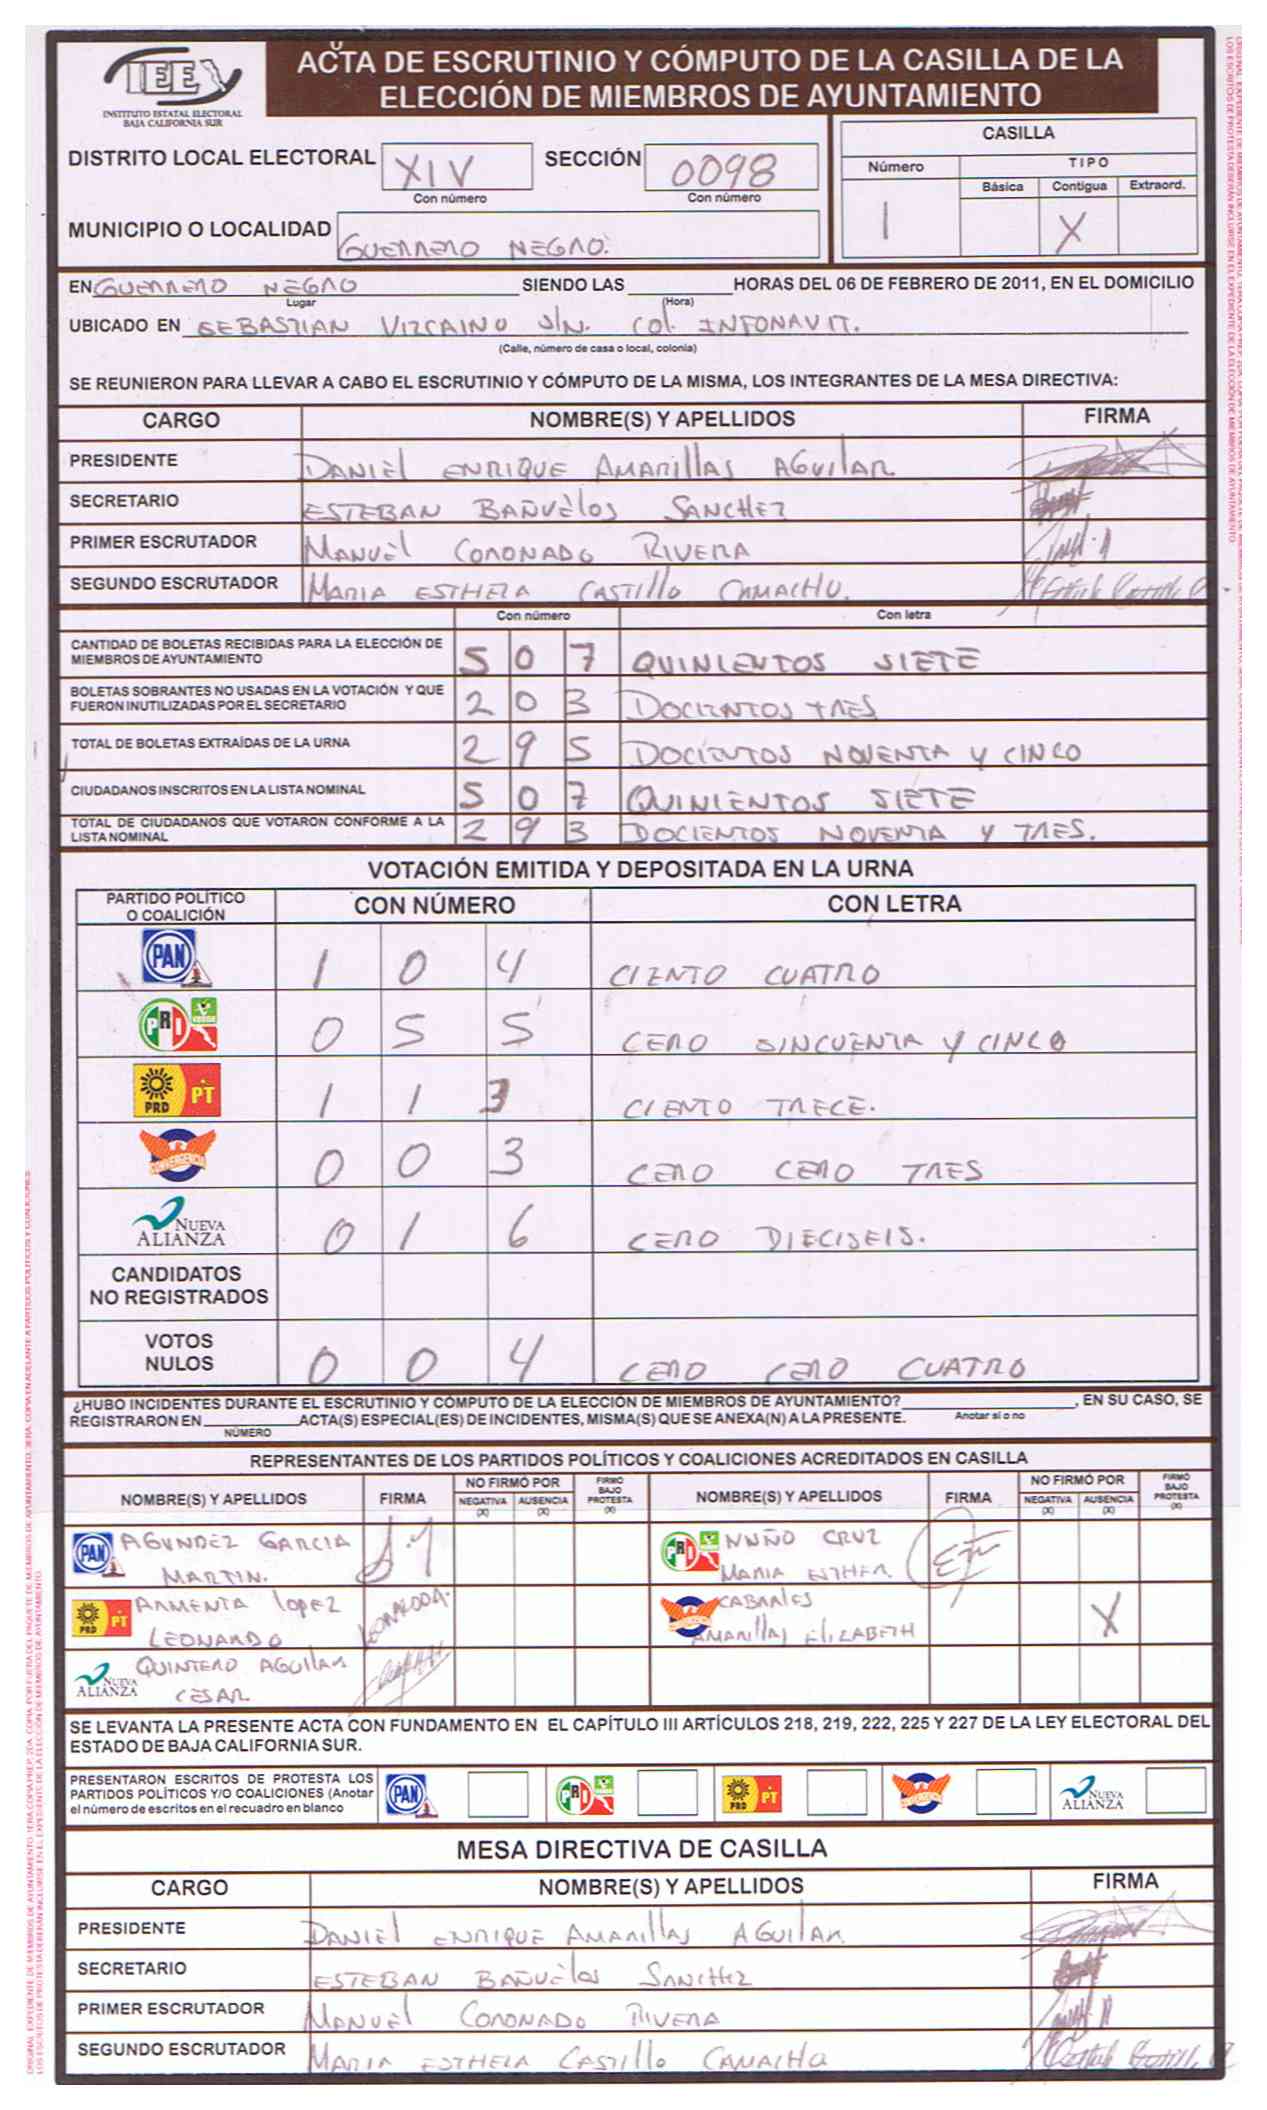 IEE
INSTITUTO ESTATAL ELECTORAL
BAJA CALIFORNIA SUR
ACTA DE ESCRUTINIO Y CÓMPUTO DE LA CASILLA DE LA
ELECCIÓN DE MIEMBROS DE AYUNTAMIENTO
DISTRITO LOCAL ELECTORAL XIV SECCIÓN 0098
Con número Con número
MUNICIPIO O LOCALIDAD GUERRERO NEGRO.
CASILLA
Número TIPO
Básica Contigua Extraord.
1 X
EN GUERRERO NEGRO SIENDO LAS HORAS DEL 06 DE FEBRERO DE 2011, EN EL DOMICILIO
Lugar (Hora)
UBICADO EN SEBASTIAN VIZCAINO S/N. COL. INFONAVIT.
(Calle, número de casa o local, colonia)
SE REUNIERON PARA LLEVAR A CABO EL ESCRUTINIO Y CÓMPUTO DE LA MISMA, LOS INTEGRANTES DE LA MESA DIRECTIVA:
CARGO NOMBRE(S) Y APELLIDOS FIRMA
PRESIDENTE DANIEL ENRIQUE AMARILLAS AGUILAR
SECRETARIO ESTEBAN BAÑUELOS SANCHEZ
PRIMER ESCRUTADOR MANUEL CORONADO RIVERA
SEGUNDO ESCRUTADOR MARIA ESTHELA CASTILLO CAMACHO.
Con número Con letra
CANTIDAD DE BOLETAS RECIBIDAS PARA LA ELECCIÓN DE
MIEMBROS DE AYUNTAMIENTO 5 0 7 QUINIENTOS SIETE
BOLETAS SOBRANTES NO USADAS EN LA VOTACIÓN Y QUE
FUERON INUTILIZADAS POR EL SECRETARIO 2 0 3 DOCIENTOS TRES
TOTAL DE BOLETAS EXTRAÍDAS DE LA URNA 2 9 5 DOCIENTOS NOVENTA Y CINCO
CIUDADANOS INSCRITOS EN LA LISTA NOMINAL 5 0 7 QUINIENTOS SIETE
TOTAL DE CIUDADANOS QUE VOTARON CONFORME A LA
LISTA NOMINAL 2 9 3 DOCIENTOS NOVENTA Y TRES.
VOTACIÓN EMITIDA Y DEPOSITADA EN LA URNA
PARTIDO POLÍTICO
O COALICIÓN CON NÚMERO CON LETRA
PAN 1 0 4 CIENTO CUATRO
PRI VERDE 0 5 5 CERO SINCUENTA Y CINCO
PRD PT 1 1 3 CIENTO TRECE.
CONVERGENCIA 0 0 3 CERO CERO TRES
NUEVA ALIANZA 0 1 6 CERO DIECISEIS.
CANDIDATOS
NO REGISTRADOS
VOTOS
NULOS 0 0 4 CERO CERO CUATRO
¿HUBO INCIDENTES DURANTE EL ESCRUTINIO Y CÓMPUTO DE LA ELECCIÓN DE MIEMBROS DE AYUNTAMIENTO? , EN SU CASO, SE
REGISTRARON EN ACTA(S) ESPECIAL(ES) DE INCIDENTES, MISMA(S) QUE SE ANEXA(N) A LA PRESENTE. Anotar sí o no
NÚMERO
REPRESENTANTES DE LOS PARTIDOS POLÍTICOS Y COALICIONES ACREDITADOS EN CASILLA
NOMBRE(S) Y APELLIDOS FIRMA NO FIRMÓ POR NEGATIVA (X) AUSENCIA (X) FIRMÓ BAJO PROTESTA (X) NOMBRE(S) Y APELLIDOS FIRMA NO FIRMÓ POR NEGATIVA (X) AUSENCIA (X) FIRMÓ BAJO PROTESTA (X)
PAN AGUNDEZ GARCIA PRI NUÑO CRUZ
MARTIN. MARIA ESTHER.
PRD PT ARMENTA LOPEZ LEONARDO A. CABRALES X
LEONARDO AMARILLAS ELIZABETH
NUEVA ALIANZA QUINTERO AGUILAR
CESAR
SE LEVANTA LA PRESENTE ACTA CON FUNDAMENTO EN EL CAPÍTULO III ARTÍCULOS 218, 219, 222, 225 Y 227 DE LA LEY ELECTORAL DEL
ESTADO DE BAJA CALIFORNIA SUR.
PRESENTARON ESCRITOS DE PROTESTA LOS
PARTIDOS POLÍTICOS Y/O COALICIONES (Anotar
el número de escritos en el recuadro en blanco
PAN PRI PRD PT NUEVA ALIANZA
MESA DIRECTIVA DE CASILLA
CARGO NOMBRE(S) Y APELLIDOS FIRMA
PRESIDENTE DANIEL ENRIQUE AMARILLAS AGUILAR
SECRETARIO ESTEBAN BAÑUELOS SANCHEZ
PRIMER ESCRUTADOR MANUEL CORONADO RIVERA
SEGUNDO ESCRUTADOR MARIA ESTHELA CASTILLO CAMACHO